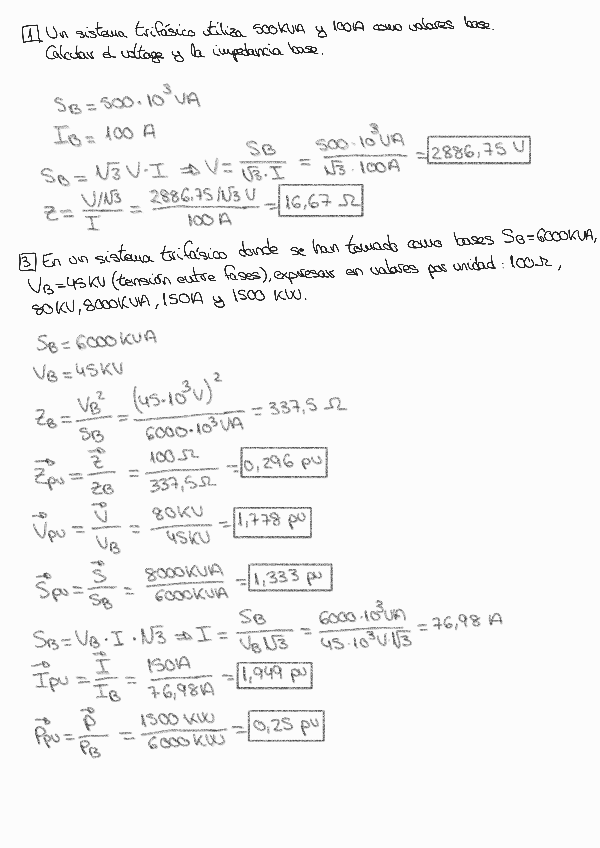 1 Un sistema trifásico utiliza 500KVA y 100A como valores base.
Calcular el voltage y la impetancia base.
S_B = 500·10³ VA
I_B = 100 A
S_B = √3 V·I ⇒ V = S_B / (√3·I) = 500·10³ VA / (√3·100A) = 2886,75 V
Z = (V/√3) / I = (2886,75/√3 V) / 100A = 16,67 Ω
3 En un sistema trifásico donde se han tomado como bases S_B=6000KVA,
V_B=45KV (tensión entre fases), expresar en valores por unidad: 100Ω,
80KV, 8000KVA, 150A y 1500 KW.
S_B = 6000KVA
V_B = 45KV
Z_B = V_B² / S_B = (45·10³V)² / 6000·10³VA = 337,5 Ω
Z⃗pu = Z⃗ / Z_B = 100Ω / 337,5Ω = 0,296 pu
V⃗pu = V⃗ / V_B = 80KV / 45KV = 1,778 pu
S⃗pu = S⃗ / S_B = 8000KVA / 6000KVA = 1,333 pu
S_B = V_B·I·√3 ⇒ I = S_B / (V_B√3) = 6000·10³VA / (45·10³V·√3) = 76,98 A
I⃗pu = I⃗ / I_B = 150A / 76,98A = 1,949 pu
P⃗pu = P⃗ / P_B = 1500 KW / 6000KW = 0,25 pu